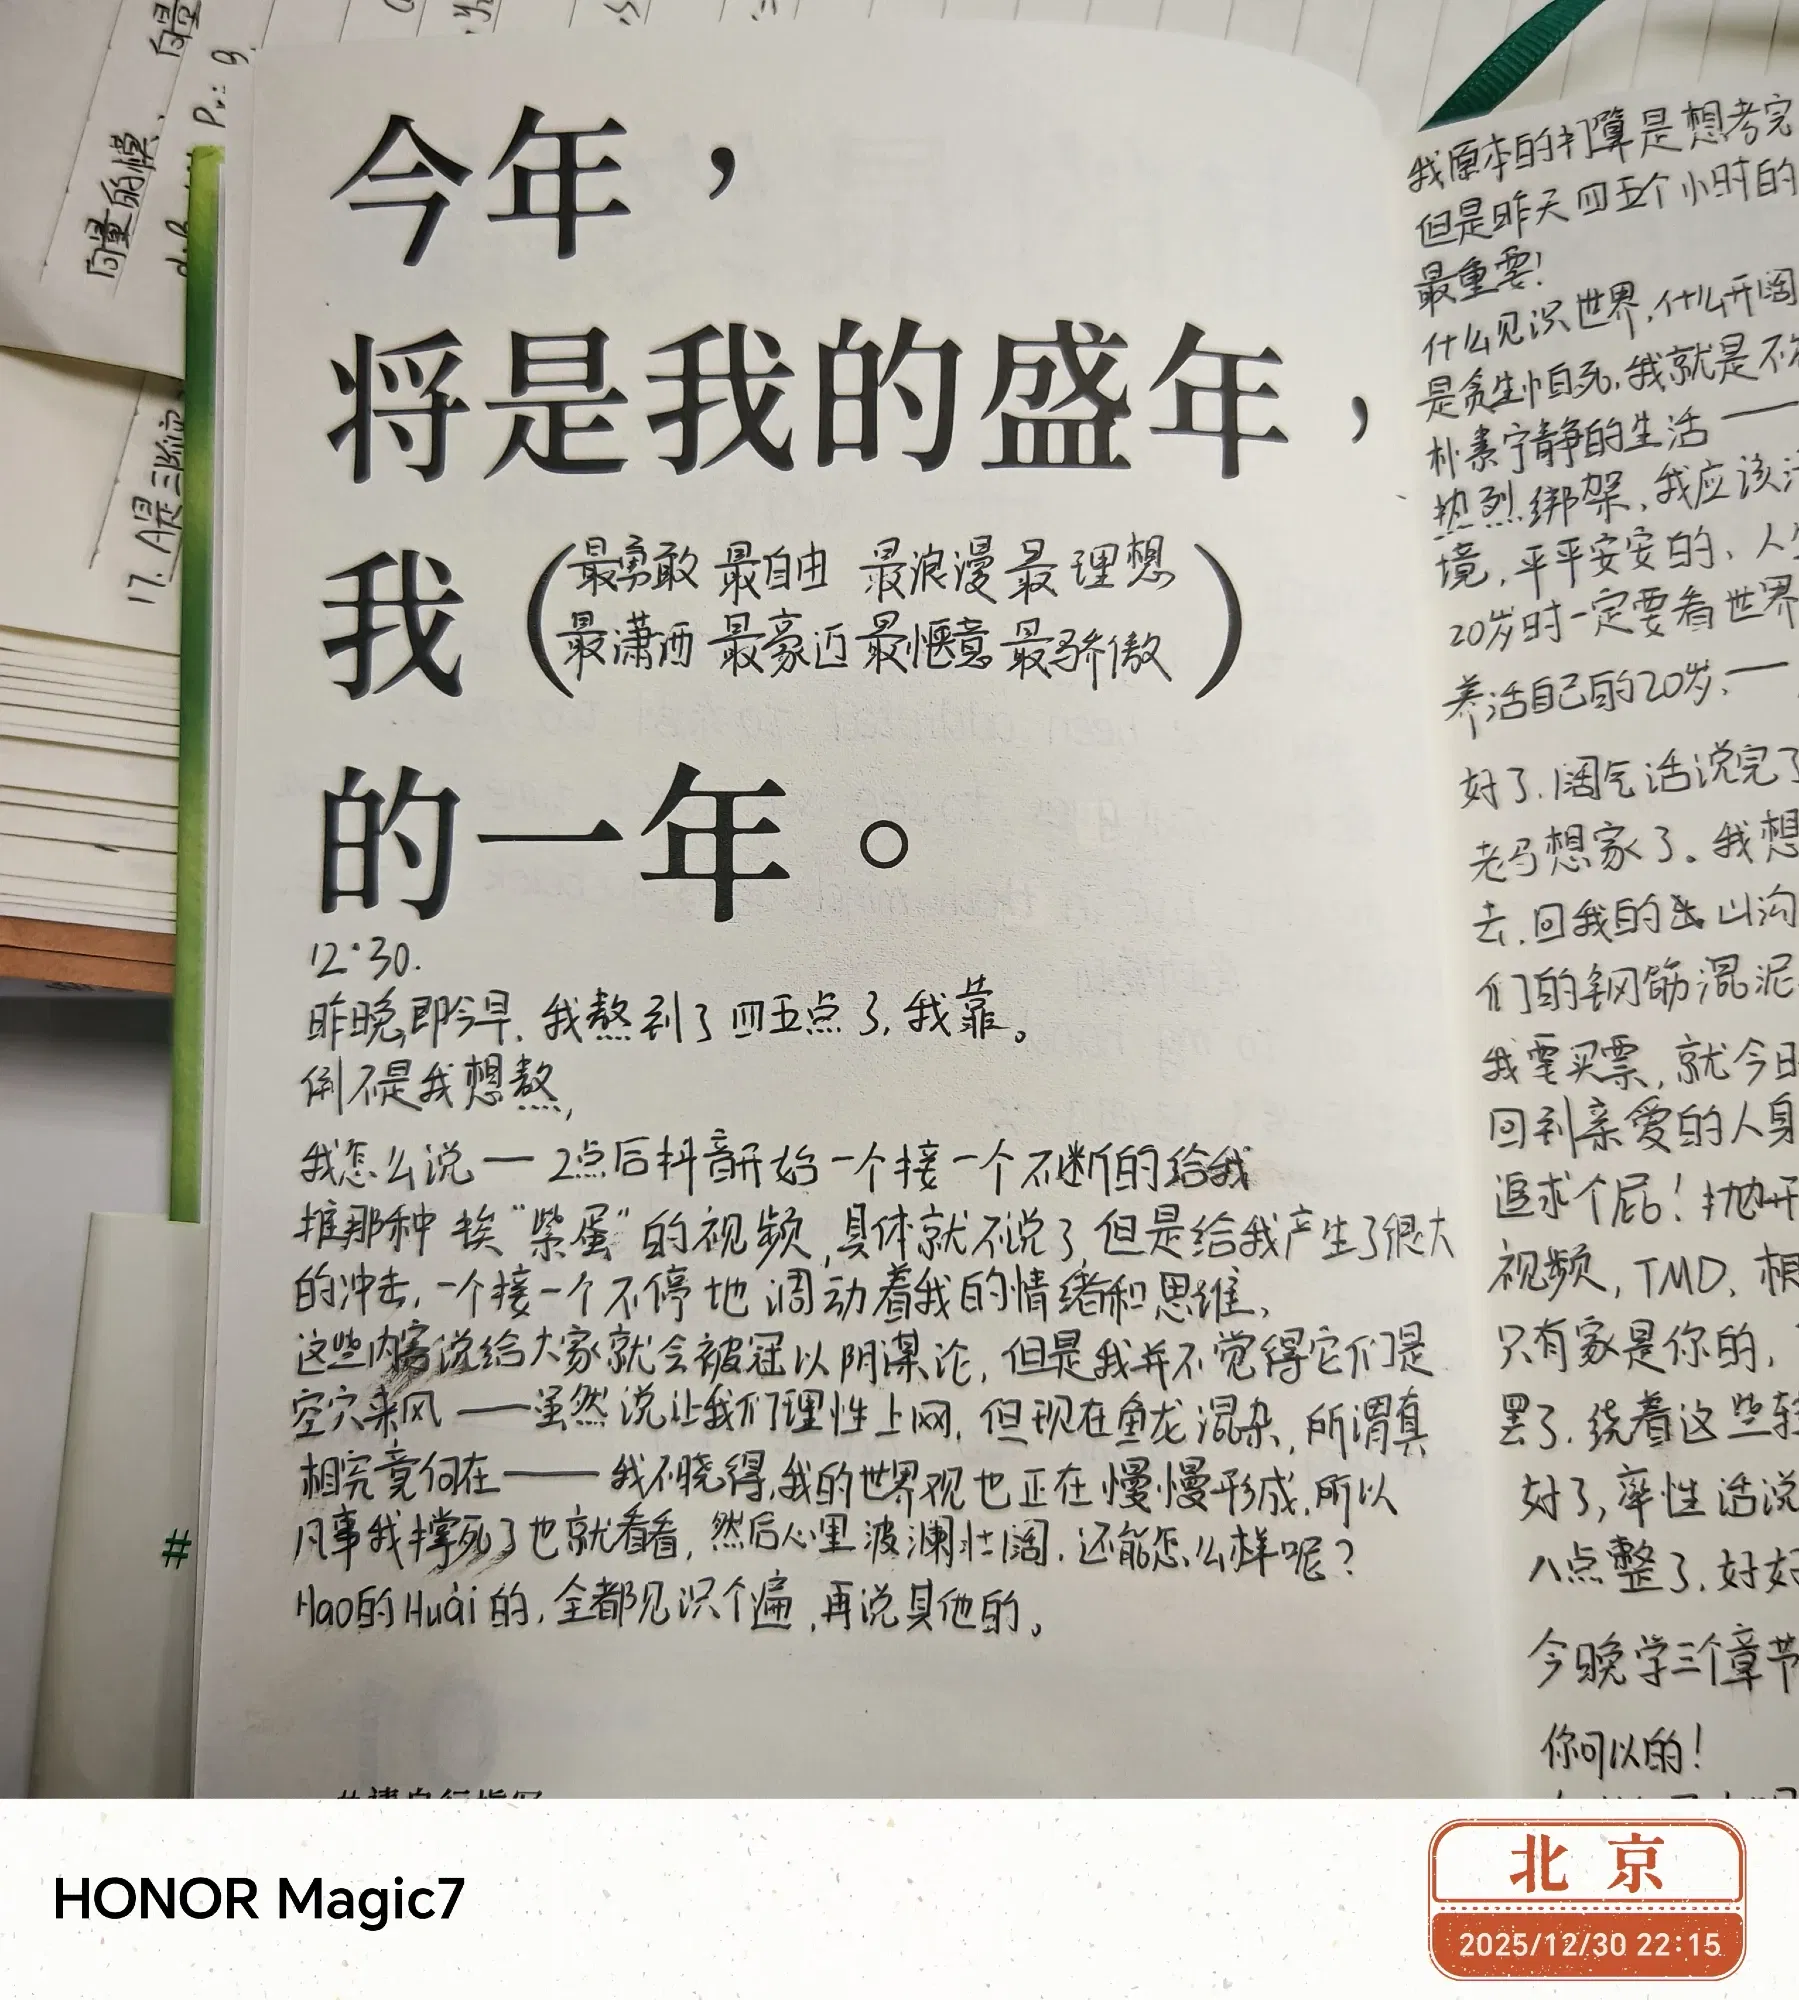 今年，
将是我的盛年，
我（最勇敢 最自由 最浪漫 最理想
最潇洒 最豪迈 最惬意 最骄傲）
的一年。
12·30.
昨晚,即今早，我熬到了四五点了,我靠。
倒不是我想熬，
我怎么说 — 2点后抖音开始一个接一个不断的给我
推那种 挨“紫蛋”的视频,具体就不说了,但是给我产生了很大
的冲击,一个接一个不停地 调动着我的情绪和思维,
这些内容说给大家就会被冠以阴谋论,但是我并不觉得它们是
空穴来风 —— 虽然说让我们理性上网,但现在鱼龙混杂,所谓真
相究竟何在 —— 我不晓得,我的世界观也正在慢慢形成,所以
凡事我撑死了也就看看,然后心里波澜壮阔,还能怎么样呢？
Hao的Huài的,全都见识个遍,再说其他的。
我原本的打算是想考完
但是昨天四五个小时的
最重要！
什么见识世界,什么开阔
是贪生怕死,我就是不
朴素宁静的生活 ——
热烈绑架,我应该
境,平平安安的、人
20岁时一定要看世界
养活自己的20岁,—
好了,阔气话说完了
老马想家了。我想
去,回我的 山沟
们的钢筋混泥
我要买票,就今日
回到亲爱的人身
追求个屁！抛开
视频,TMD,相
只有家是你的,
罢了,绕着这些
好了,率性话说
八点整了,好好
今晚学三个章节
你可以的！
向量的模、向量
17. A是三阶
#
HONOR Magic7
北京
2025/12/30 22:15